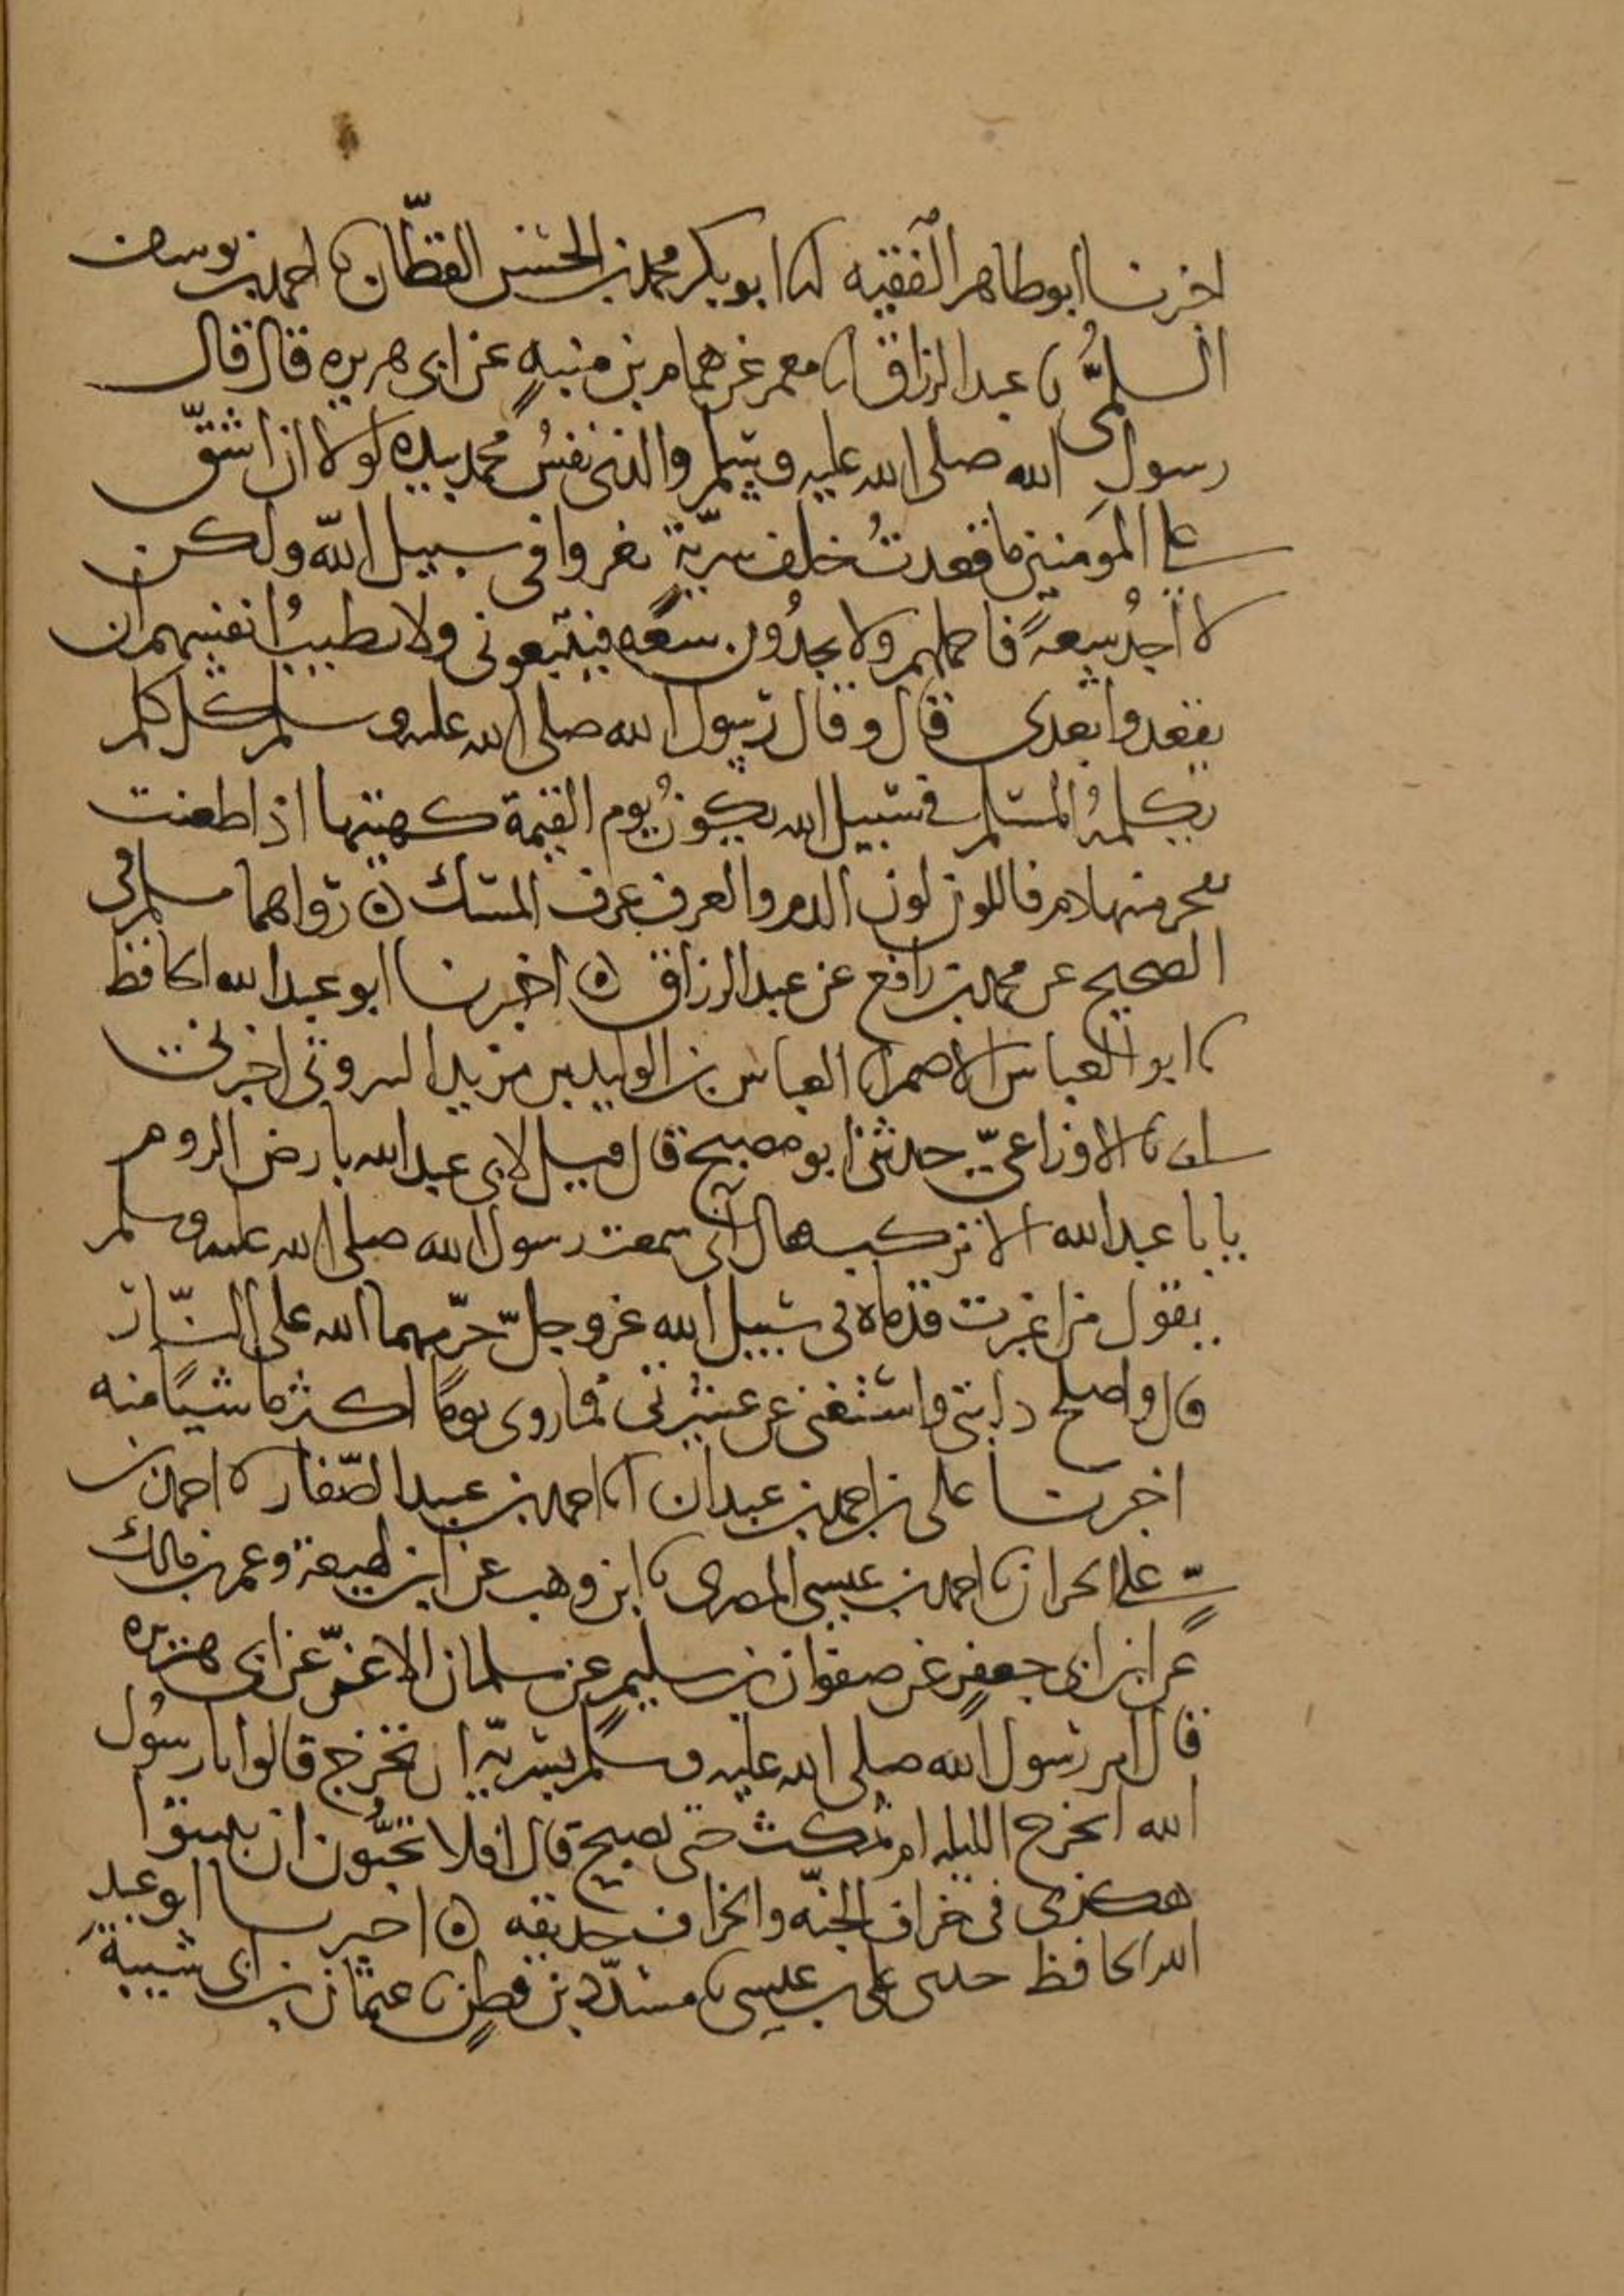 اخبرنا ابو طاهر الفقيه انا ابو بكر محمد بن الحسين القطان نا احمد بن يوسف
السلمي نا عبد الرزاق انا معمر عن همام بن منبه عن ابي هريره قال قال
رسول الله صلى الله عليه وسلم والذي نفس محمد بيده لولا ان اشق
على المومنين ما قعدت خلف سرية تغزوا في سبيل الله ولكن
لا اجد سعة فاحملهم ولا يجدون سعه فيتبعوني ولا تطيب انفسهم ان
يقعدوا بعدي قال وقال رسول الله صلى الله عليه وسلم كل كلم
يكلمه المسلم في سبيل الله يكون يوم القيمة كهيتها اذا طعنت
تفجر منها دم فاللون لون الدم والعرف عرف المسك ه رواهما مسلم في
الصحيح عن محمد بن رافع عن عبد الرزاق ه اخبرنا ابو عبد الله الحافظ
نا ابو العباس الاصم انا العباس بن الوليد بن مزيد البيروتي اخبرني
نا الاوزاعي حدثني ابو مصبح قال قيل لابي عبد الله بارض الروم
يا با عبد الله الا تركب قال اني سمعت رسول الله صلى الله عليه وسلم
يقول من اغبرت قدماه في سبيل الله عز وجل حرمهما الله على النار
قال واصلح دابتي واستغني عن عشيرتي فما روي يوما اكثر ماشيا منه
اخبرنا علي بن احمد بن عبدان انا احمد بن عبيد الصفار نا احمد بن
علي الخراز نا احمد بن عيسى المصري نا ابن وهب عن ابن لهيعة وعمر بن مالك
عن ابن ابي جعفر عن صفوان بن سليم عن سلمان الاغر عن ابي هريره
قال امر رسول الله صلى الله عليه وسلم بسرية ان تخرج قالوا يا رسول
الله انخرج الليله ام نمكث حتى نصبح قال افلا تحبون ان تبيتوا
هكذى في خراف الجنه والخراف حديقه ه اخبرنا ابو عبد
الله الحافظ حدثني علي بن عيسى نا مسدد بن قطن نا عثمان بن ابي شيبة